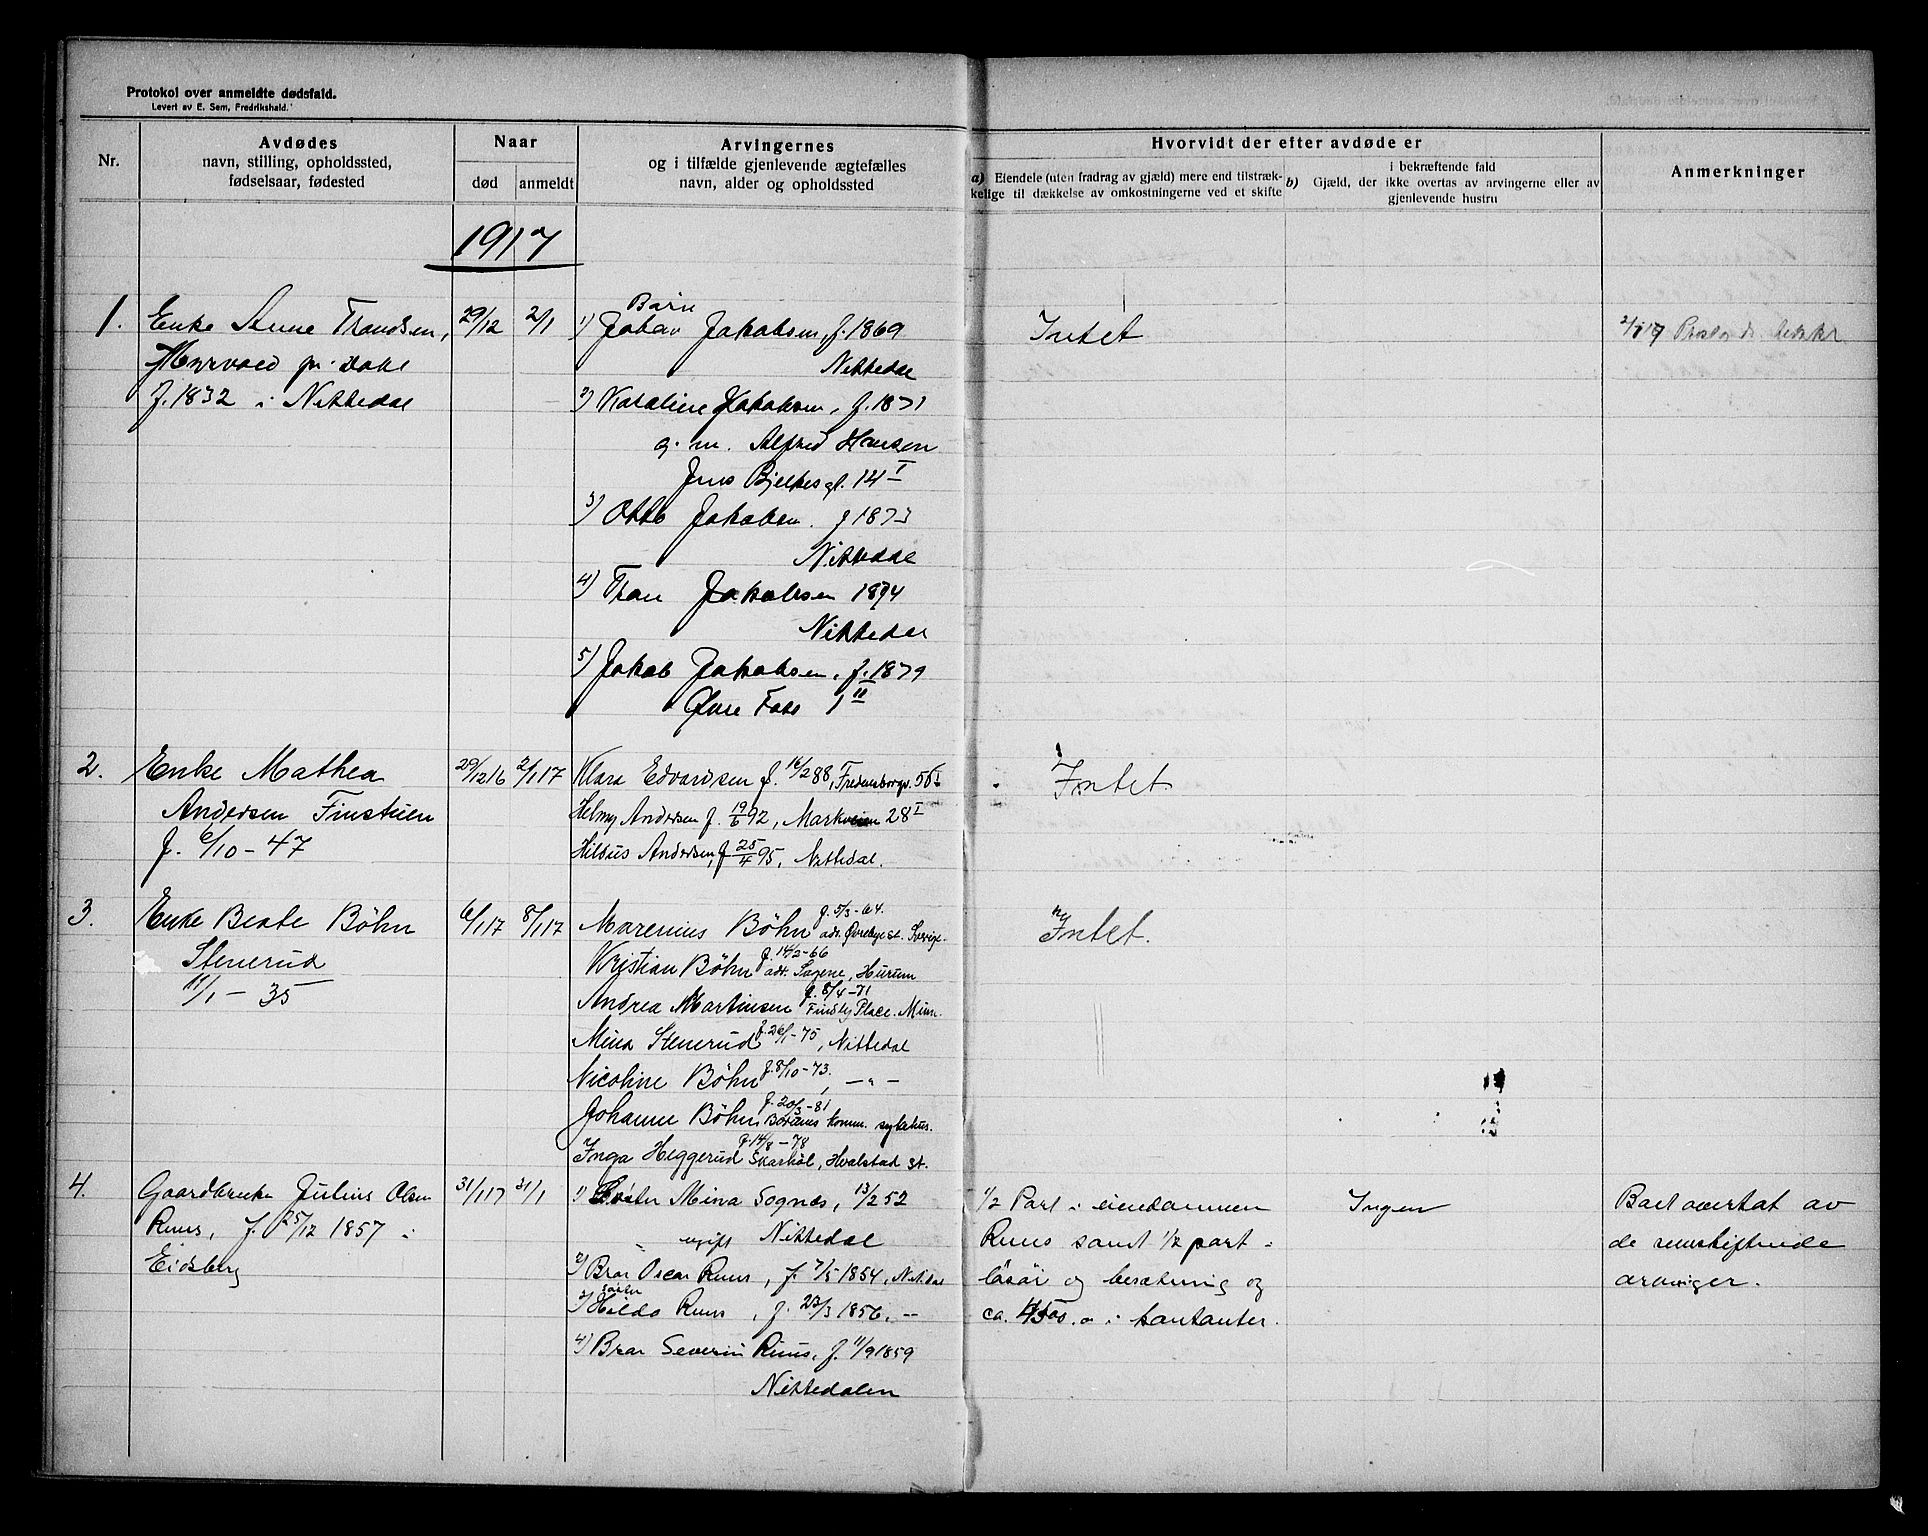 Protokol over anmeldte dødsfald.
Levert av E. Sem, Fredrikshald.
Nr.
Avdødes
navn, stilling, opholdssted,
fødselsaar, fødested
Naar
død
anmeldt
Arvingernes
og i tilfælde gjenlevende ægtefælles
navn, alder og opholdssted
Hvorvidt der efter avdøde er
a) Eiendele (uten fradrag av gjæld) mere end tilstræk-
kelige til dækkelse av omkostningerne ved et skifte
i bekræftende fald
b) Gjæld, der ikke overtas av arvingerne eller av
gjenlevende hustru
Anmerkninger
1917
1.
Enke Anne Trondsen,
pr. Dale
f. 1832 i Nittedal
29/12
2/1
Børn
1) Johan Jakobsen, f. 1869
Nittedal
2) Karoline Jakobsen, f. 1871
g. m. Alfred Hansen
Jens Bjelkesgt. 14 I
3) Otto Jakobsen. f 1873
Nittedal
4) Jakobsen 1874
Nittedal
5) Jakob Jakobsen, f. 1879
Øvre Foss 1 II
Intet
2/1 17
2.
Enke Mathea
Andersen Finstuen
f. 6/10 - 47
29/12 16
2/1 17
Klara Edvardsen f. 16/2 88, Fredensborgv. 50 I
Helmy Andersen f. 19/6 92, Markveien 28 I
Hildus Andersen, f 25/4 95, Nittedal.
Intet
3.
Enke Beate Bøhn
Stenerud
11/1 - 35
6/1 17
8/1 17
f. 5/3 - 64.
Marenius Bøhn adr. st. Sverige.
f. 14/2 - 66
Kristian Bøhn adr. Sagene, Hurum
f. 8/4 - 71
Andrea Martinsen Findley Place. Minn.
Mina Stenerud f. 26/1 - 75, Nittedal
Nicoline Bøhn f. 8/10 - 73, - " -
f. 20/3 - 81
Johanne Bøhn Bærums komm. sykehus.
f. 14/8 - 78
Inga Heggerud Skarhol, Hvalstad st.
Intet.
4.
Gaardbruker Julius Olsen
Ruus, f. 25/12 1857 i
Eidsberg
31/1 17
31/1
1) Søster Mina Sognæs, 13/2 52
ugift Nittedal
2) Bror Oscar Ruus, f. 7/5 1854, Nittedal
søster
3) Hilda Ruus, f. 23/3 1856. - -
4) Bror Severin Ruus, f. 11/9 1859
Nittedalen
1/2 Part i eiendommen
Ruus samt 1/2 part i
løsøre og besætning og
ca. 4500. i kontanter.
Ingen
Boet overtat av
de selvskiftende
arvinger.